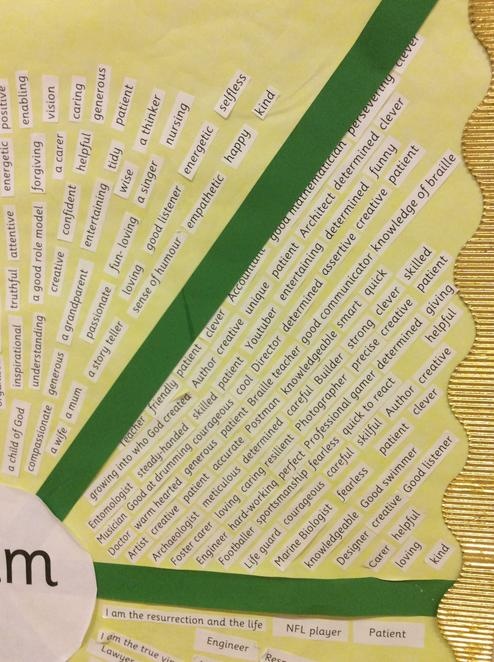 positive
enabling
vision
caring
generous
patient
a thinker
nursing
selfless
kind
energetic
forgiving
a carer
helpful
tidy
wise
a singer
energetic
happy
truthful
attentive
a good role model
confident
entertaining
fun-loving
loving
good listener
empathetic
inspirational
understanding
creative
a grandparent
passionate
a story teller
sense of humour
a child of God
compassionate
generous
a wife
a mum
teacher friendly patient clever Accountant good mathematician persevering clever
growing into who God created Author creative unique patient Architect determined clever
Entomologist steady-handed skilled patient Youtuber entertaining determined funny
Musician Good at drumming courageous cool Director determined assertive creative patient
Doctor warm hearted generous patient Braille teacher good communicator knowledge of braille
Artist creative patient accurate Postman knowledgeable smart quick
Archaeologist meticulous determined careful Builder strong clever skilled
Foster carer loving caring resilient Photographer precise creative patient
Engineer hard-working perfect Professional gamer determined giving
Footballer sportsmanship fearless quick to react helpful
Life guard courageous careful skilful Author creative
Marine Biologist fearless patient clever
knowledgeable Good swimmer
Designer creative Good listener
Carer helpful
loving kind
m
I am the resurrection and the life
NFL player
Patient
I am the true
Engineer
Lawyer